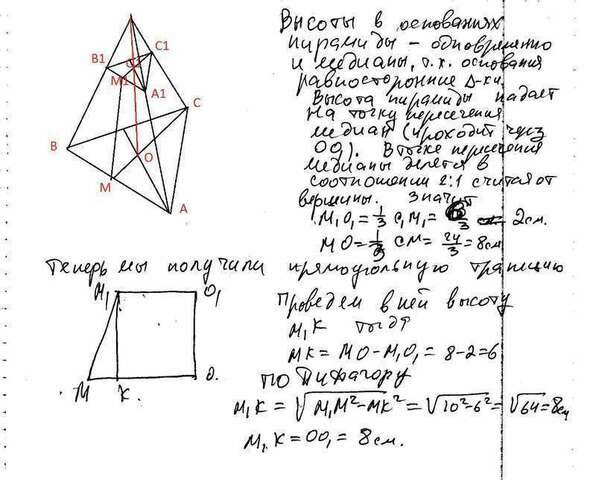 Высоты в основаниях
пирамиды - одновременно
и медианы, т.к. основания
равносторонние Δ-ки.
Высота пирамиды падает
на точку пересечения
медиан (проходит через
OO₁). В точке пересечения
медианы делятся в
соотношении 2:1 считая от
вершины. Значит
M₁O₁ = 1/3 C₁M₁ = 6/3 = 2см.
MO = 1/3 CM = 24/3 = 8см
B1
C1
M1
A1
C
B
O
M
A
Теперь мы получили прямоугольную трапецию
M₁
O₁
M
K.
O.
Проведем в ней высоту
M₁K тогда
MK = MO - M₁O₁ = 8-2=6
по Пифагору
M₁K = √M₁M² - MK² = √10²-6² = √64 = 8см
M₁K = OO₁ = 8см.